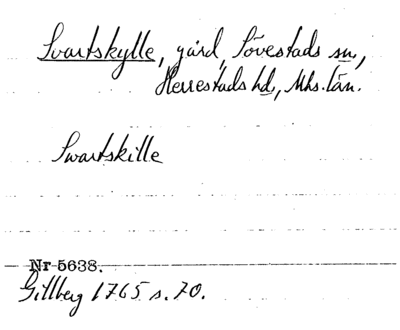 Svartskylle, gård, Sövestads sn,
Herrestads hd, Mhs. län.
Swartskille
Nr 5638.
Gillberg 1765 s. 70.